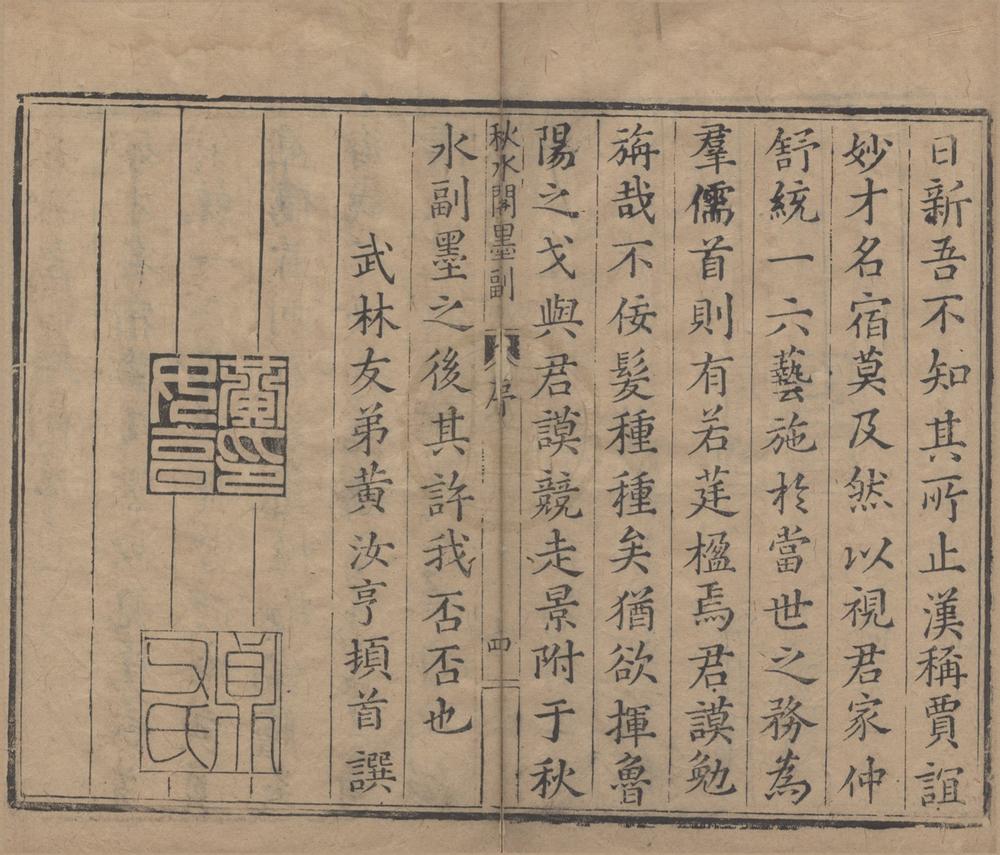 日新吾不知其所止漢稱賈誼
妙才名宿莫及然以視君家仲
舒統一六藝施於當世之務為
羣儒首則有若莛楹焉君謨勉
旃哉不佞髮種種矣猶欲揮魯
陽之戈與君謨競走景附于秋
秋水閣墨副
序
四
水副墨之後其許我否否也
武林友弟黃汝亨頓首譔
黃印
汝亨
貞父氏